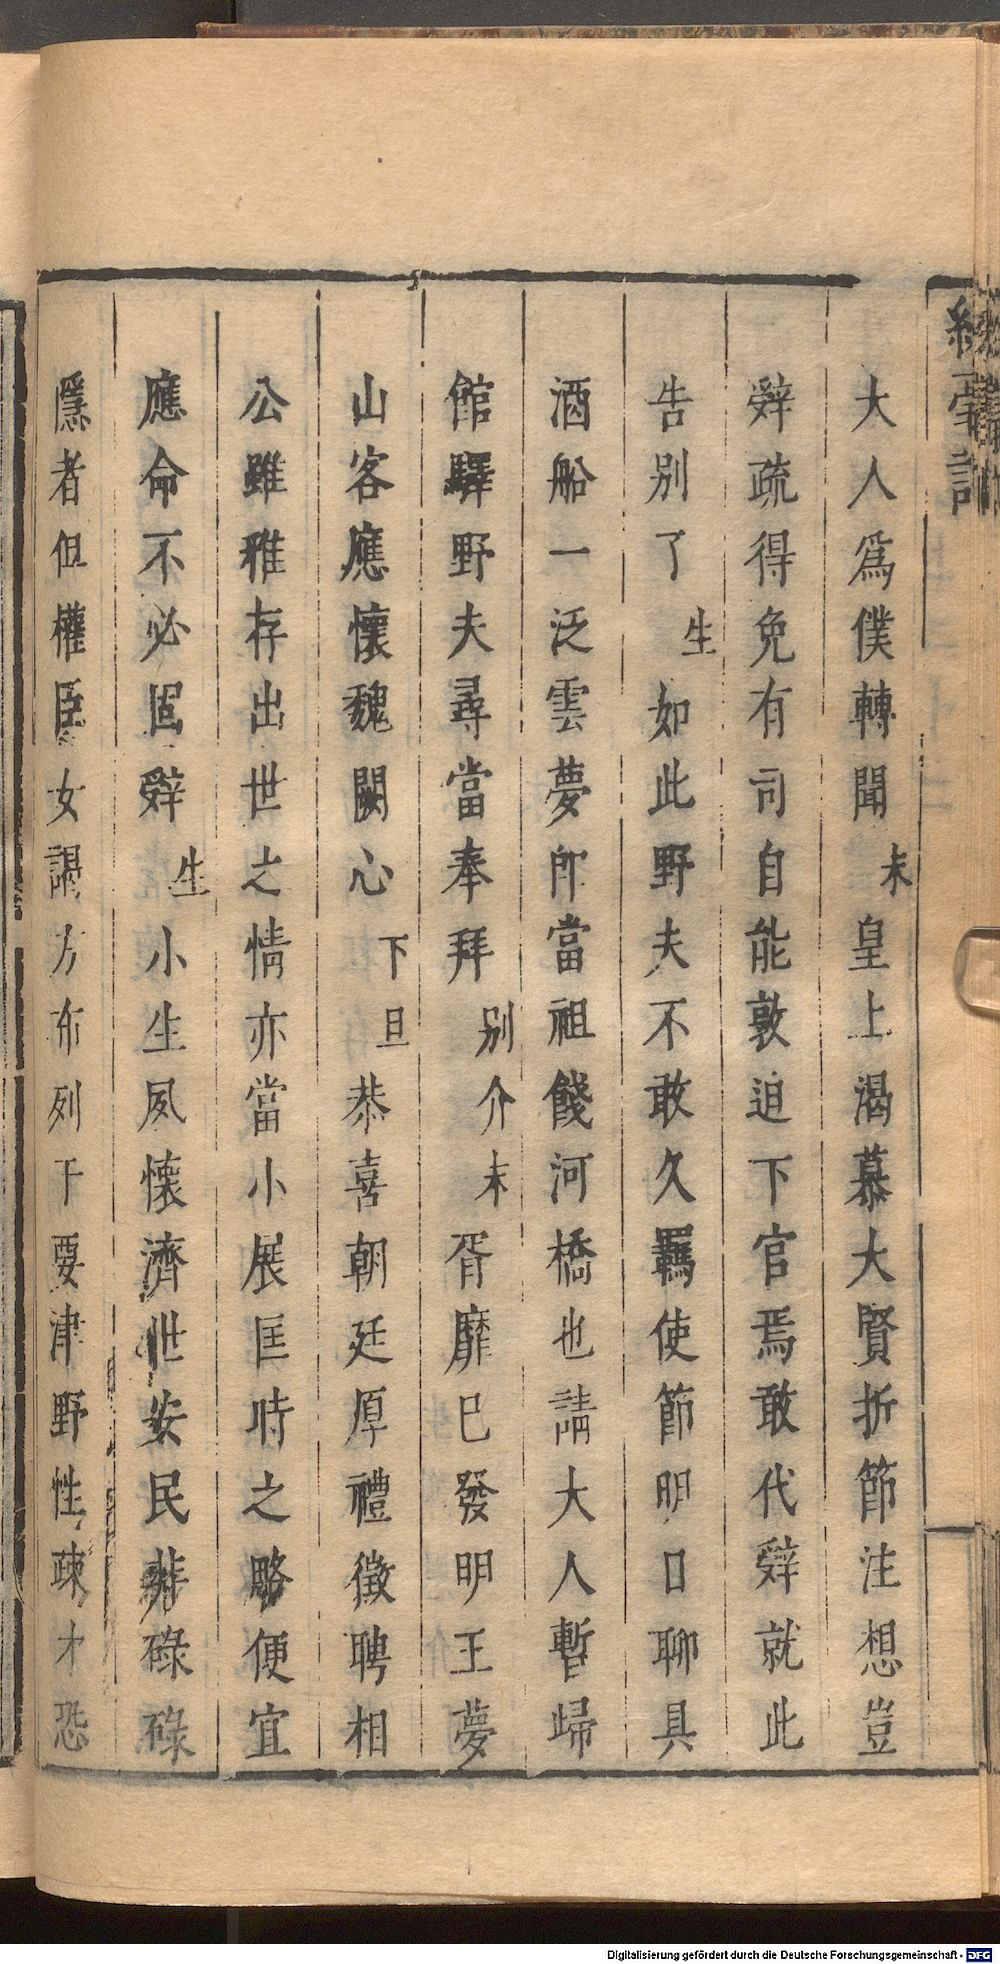 大人爲僕轉聞末皇上渴慕大賢折節注想豈
辭疏得免有司自能敦迫下官焉敢代辭就此
告別了生如此野夫不敢久羈使節明日聊具
酒船一泛雲夢卽當祖餞河橋也請大人暫歸
館驛野夫尋當奉拜別介末胥靡已發明王夢
山客應懷魏闕心下旦恭喜朝廷厚禮徵聘相
公雖雅存出世之情亦當小展匡時之略便宜
應命不必固辭生小生夙懷濟世安民非碌碌
隱者但權臣女謁方布列于要津野性疎才恐
Digitalisierung gefördert durch die Deutsche Forschungsgemeinschaft - DFG